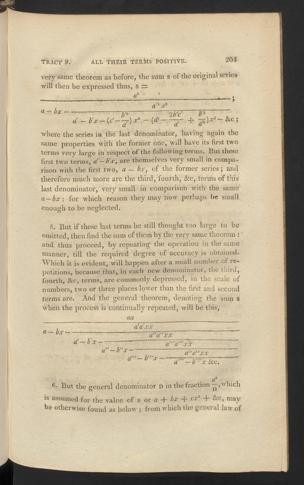 TRACT 9. ALL THEIR TERMS POSITIVE. 203
very same theorem as before, the sum s of the original series
will then be expressed thus, s =
where the series in the last denominator, having again the
same properties with the former one, will have its first two
terms very large in respect of the following terms. But these
first two terms, a′ − b′x, are themselves very small in compa-
rison with the first two, a − bx, of the former series; and
therefore much more are the third, fourth, &c, terms of this
last denominator, very small in comparison with the same
a − bx: for which reason they may now perhaps be small
enough to be neglected.
5. But if these last terms be still thought too large to be
omitted, then find the sum of them by the very same theorem:
and thus proceed, by repeating the operation in the same
manner, till the required degree of accuracy is obtained.
Which it is evident, will happen after a small number of re-
petitions, because that, in each new denominator, the third,
fourth, &c, terms, are commonly depressed, in the scale of
numbers, two or three places lower than the first and second
terms are. And the general theorem, denoting the sum s
when the process is continually repeated, will be this,
6. But the general denominator D in the fraction a²/D, which
is assumed for the value of s or a + bx + cx² + &c, may
be otherwise found as below; from which the general law of